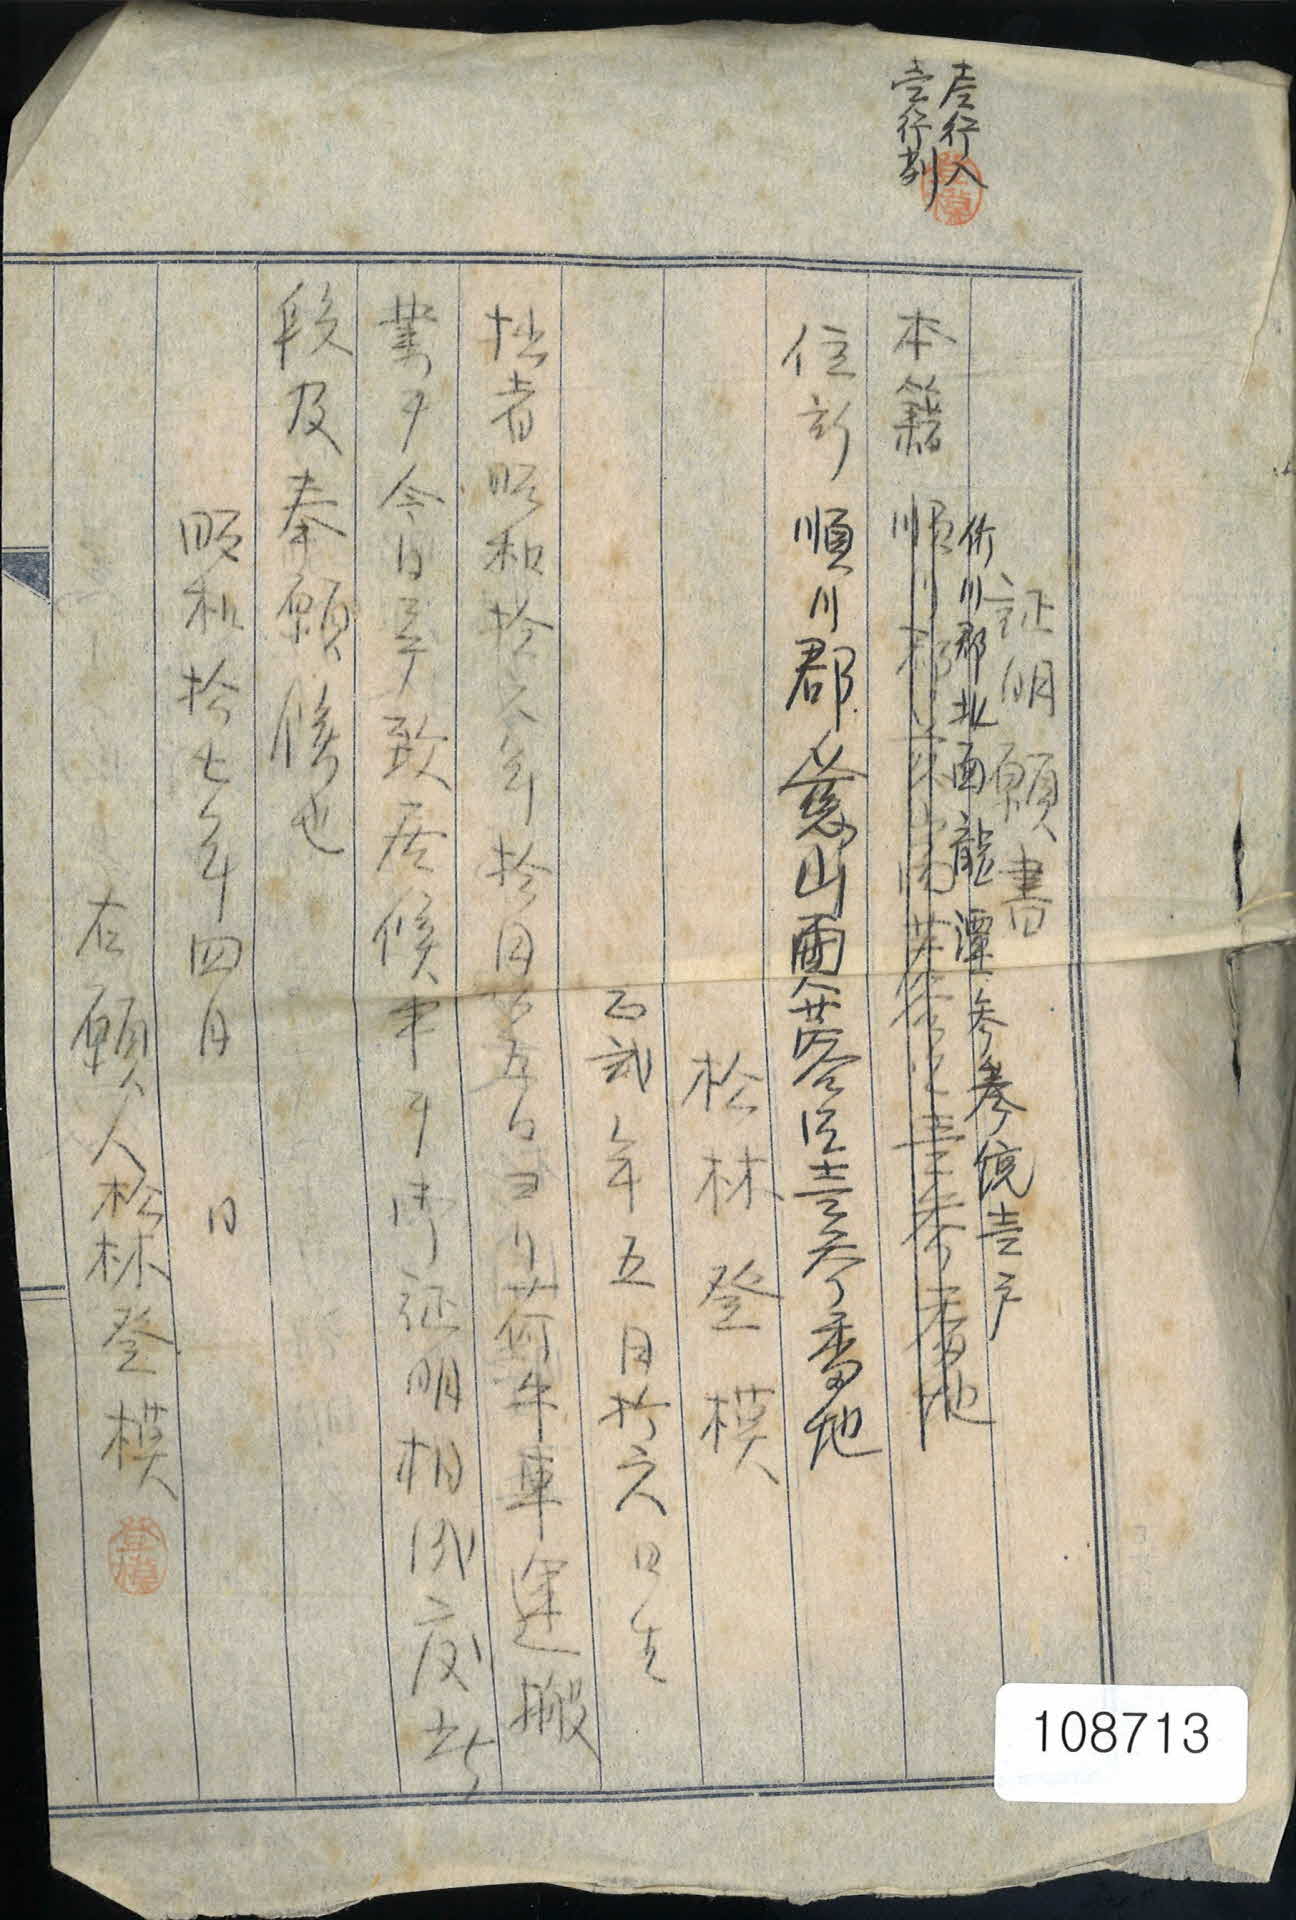 壱行入
壱行削
証明願書
价川郡北面龍潭参参統壱戸
本籍 順川郡慈山面芸谷里壱参番地
住所 順川郡慈山面芸谷里壱参番地
松林登模
正弐年五月拾六日生
拙者昭和拾六年拾月廿五日ヨリ荷牛車運搬
業ヲ今日至テ致居候
ヲ御証明相成度此
段及奉願候也
昭和拾七年四月 日
右願人松林登模
登模
108713